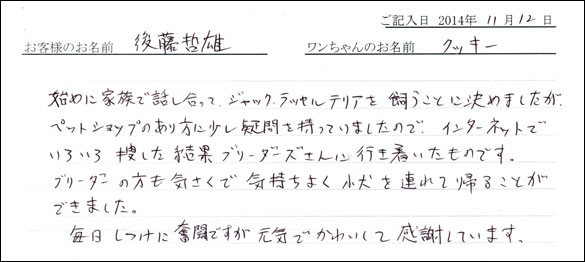 ご記入日 2014年 11月 12日
お客様のお名前 後藤哲雄 ワンちゃんのお名前 クッキー
始めに家族で話し合って、ジャック、ラッセルテリアを 飼うことに決めましたが、
ペットショップのあり方に少し疑問を持っていましたので、インターネットで
いろいろ 捜した結果 ブリーダーズさんに行き着いたものです。
ブリーダーの方も気さくで 気持ちよく 小犬を連れて帰ることが
できました。
毎日しつけに奮闘ですが 元気でかわいして 感謝しています。